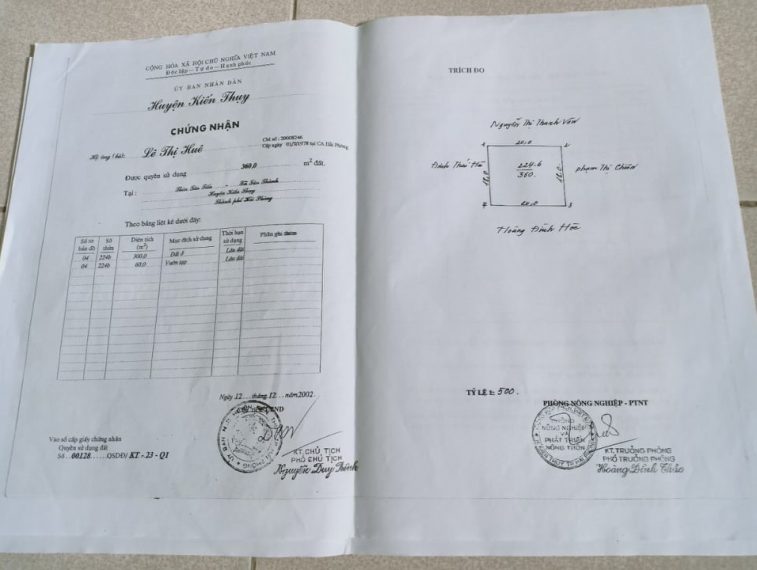 CỘNG HÒA XÃ HỘI CHỦ NGHĨA VIỆT NAM
Độc lập - Tự do - Hạnh phúc
ỦY BAN NHÂN DÂN
Huyện Kiến Thụy
CHỨNG NHẬN
Hộ ông (bà): Lê Thị Huê
Được quyền sử dụng 360,0 m² đất.
Tại:
Huyện Kiến Thụy
Thành phố Hải Phòng
Theo bảng liệt kê dưới đây:
Số tờ bản đồ Số thửa Diện tích (m²) Mục đích sử dụng Thời hạn sử dụng Phần ghi thêm
04 224b 300,0 Đất ở Lâu dài
04 224b 60,0 Vườn tạp Lâu dài
Ngày 12 tháng 12 năm 2002.
KT. CHỦ TỊCH
PHÓ CHỦ TỊCH
Vào sổ cấp giấy chứng nhận
Quyền sử dụng đất
Số 00128 QSDĐ/ KT - 23 - Q1
TRÍCH ĐO
Nguyễn Thị Thanh Vân
Đinh Thái Hà
224.b
360.
phạm Thị Chiên
Hoàng Đình Hòe
TỶ LỆ 1: 500.
PHÒNG NÔNG NGHIỆP - PTNT
PHÒNG
NÔNG NGHIỆP
VÀ
PHÁT TRIỂN
NÔNG THÔN
KT. TRƯỞNG PHÒNG
PHÓ TRƯỞNG PHÒNG
Hoàng Đình Thảo